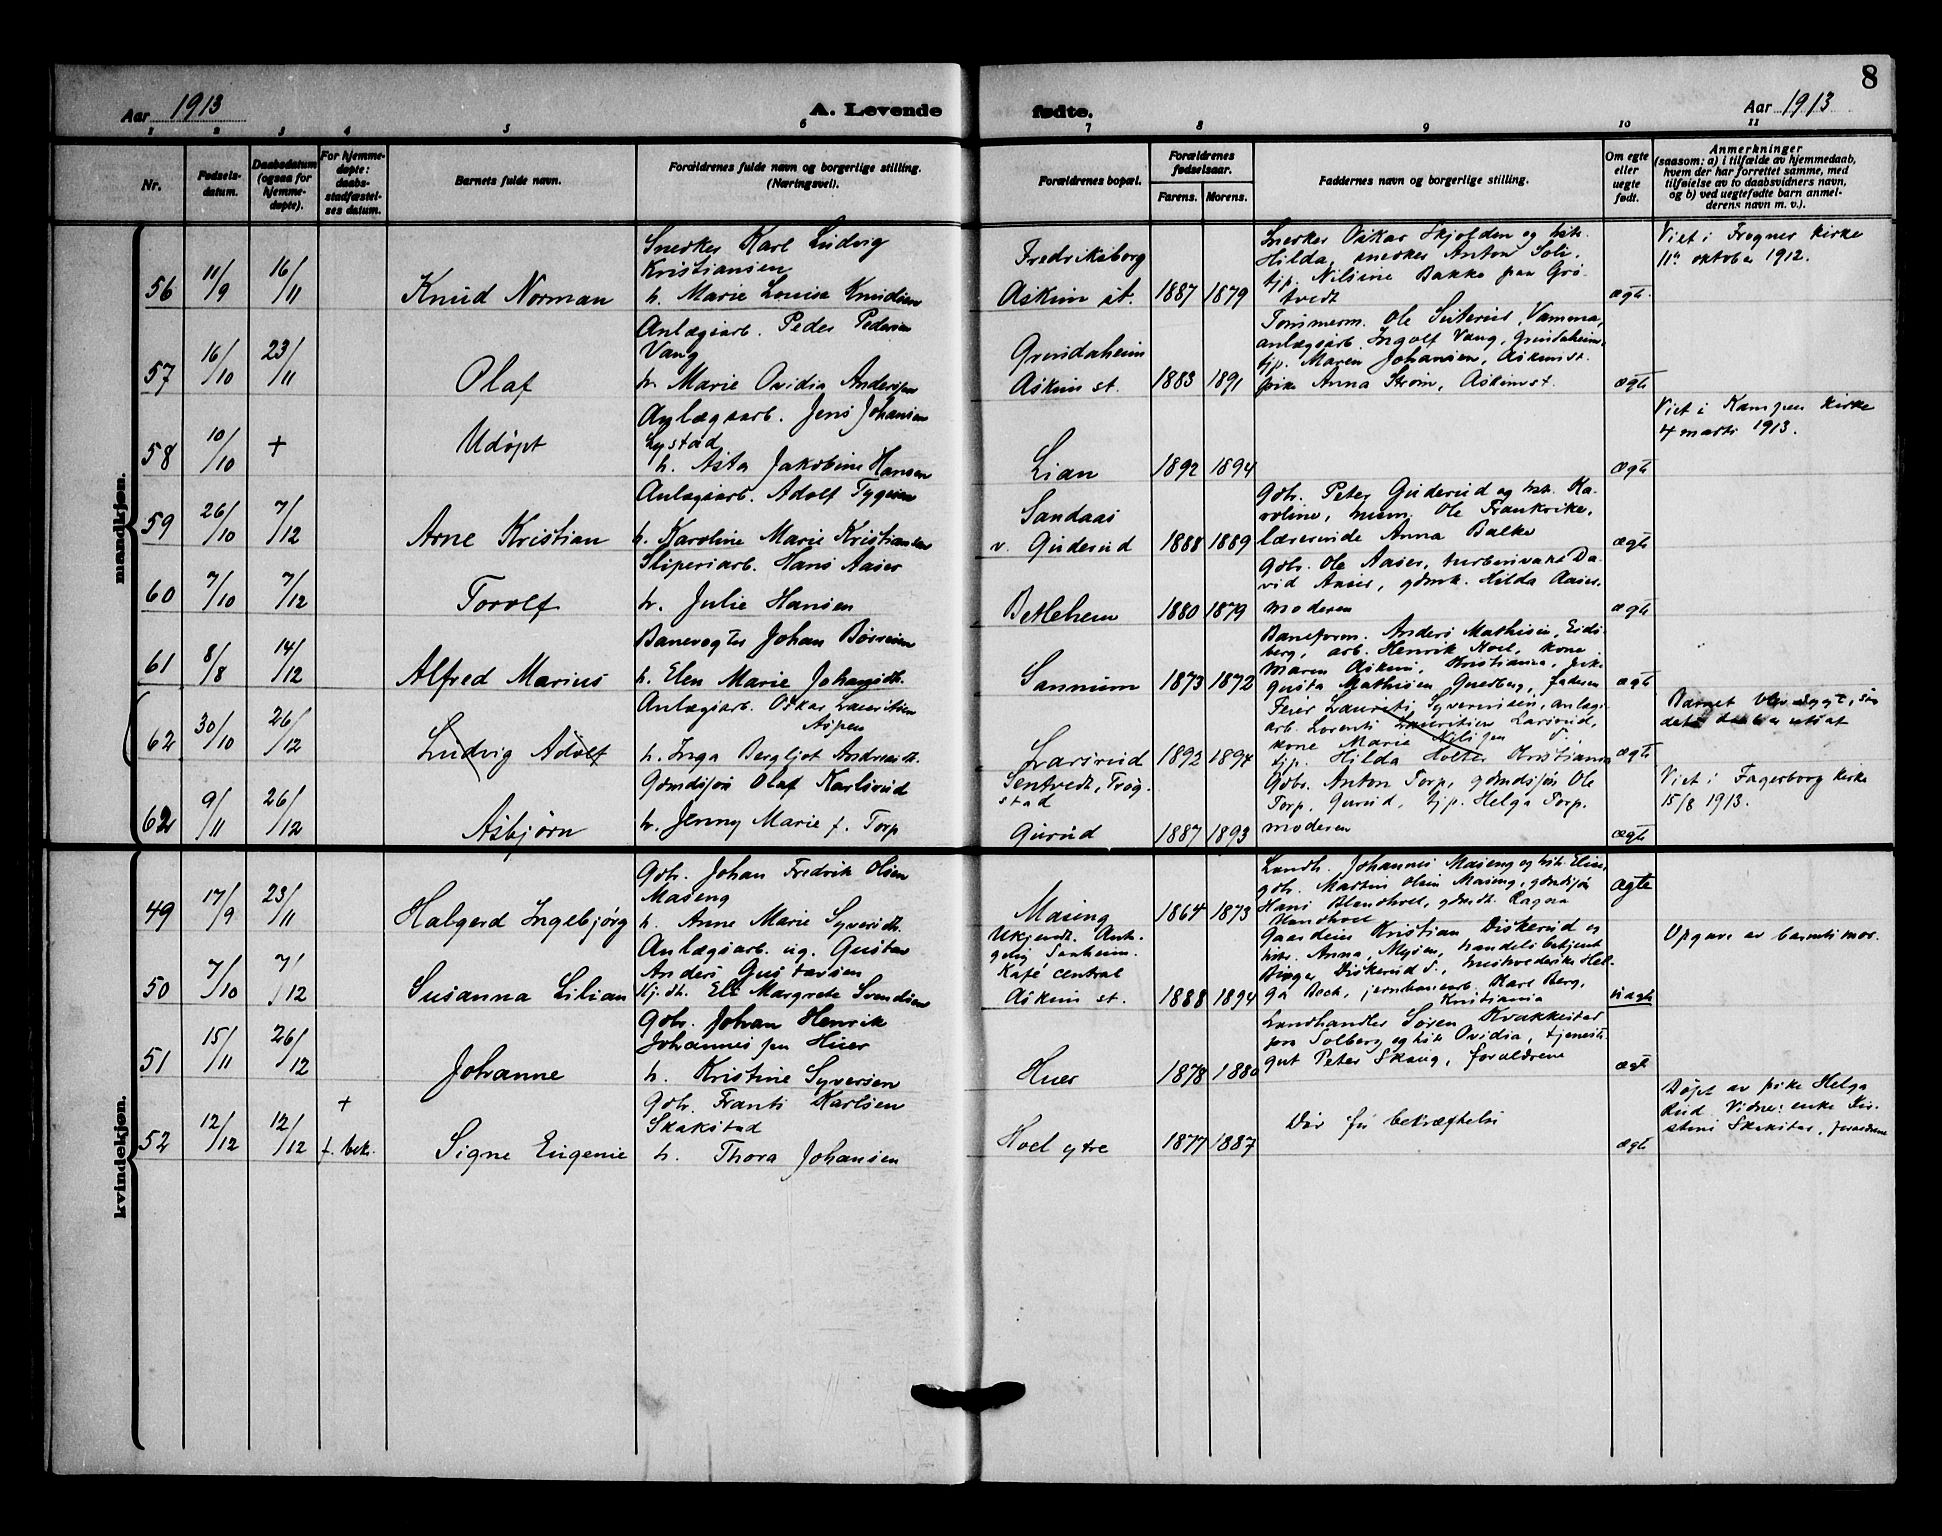 8
Aar 1913
A. Levende
fødte.
Aar 1913
1 2 3 4 5 6 7 8 9 10 11
Nr.
Fødsels-
datum.
Daabsdatum
(ogsaa for
hjemme-
døpte).
For hjemme-
døpte:
daabs-
stadfæstel-
ses datum.
Barnets fulde navn.
Forældrenes fulde navn og borgerlige stilling.
(Næringsvei).
Forældrenes bopæl.
Forældrenes
fødselsaar.
Farens. Morens.
Faddernes navn og borgerlige stilling.
Om egte
eller
uegte
født.
Anmerkninger
(saasom: a) i tilfælde av hjemmedaab,
hvem der har forrettet samme, med
tilføielse av to daabsvidners navn,
og b) ved uegtefødte barn anmel-
derens navn m. v.).
mandkjøn.
56 11/9 16/11 Knud Norman
Snerker Karl Ludvig
Kristiansen
h. Marie Louise Knudsen
Fredriksborg
Askim st. 1887 1879
Snerker Oskar Skjolden og hstr.
Hilda, snerker Anton Soli,
tjp. Nilsine Bakke paa Grø-
tvedt
ægte
Viet i Frogner kirke
11te oktober 1912.
57 16/10 23/11 Olaf
Anlægsarb. Peder Pedersen
Vang
h. Marie Ovidia Anderssen
Grindaheim
Askim st. 1883 1891
Tømmerm. Ole Suterus, Vamma,
anlægsarb. Ingolf Vang, Grindaheim,
tjp. Maren Johansen, Askim st.
pike Anna Strøm, Askim st.
ægte
58 10/10 + Udøpt
Anlægsarb. Jens Johansen
Lystad
h. Asta Jakobine Hansen
Lian 1892 1894
ægte
Viet i Kampen kirke
4 marts 1913.
59 26/10 7/12 Arne Kristian
Anlægsarb. Adolf Tygesen
h. Karoline Marie Kristiansen
Sandaas
v. Guderud 1888 1889
Gbr. Peter Guderud og hstr. Ka-
roline, mum. Ole Frankrike,
lærerinde Anna Balke
ægte
60 7/10 7/12 Torolf
Sliperiarb. Hans Aaser
h. Julie Hansen
Betlehem 1880 1879
Gbr. Ole Aaser, turbinvakt Da-
vid Aaser, gdmk. Hilda Aaser,
moderen
ægte
61 8/8 14/12 Alfred Marius
Banevogter Johan Børresen
h. Elen Marie Johansdt.
Sannum 1873 1872
Baneform. Anders Mathisen, Eids-
berg, arb. Henrik Hoel, kone
Maren Askim, Kristiania,
Mathisen faderen
ægte
62 30/10 26/12 Ludvig Adolf
Anlægsarb. Oskar Lauritsen
Aspen
h. Inga Bergljot Andreasdt.
Larsrud 1892 1894
Feier Laurets Syvertsen, anlægs-
arb. Lorents Lauritsen Larsrud,
kone Marie Nilssen
tjp. Hilda Holter Kristiania
ægte
Barnet blev sygt, saa
62 9/11 26/12 Asbjørn
Gdmdsjøn Olaf Karlsrud
h. Jenny Marie f. Torp
Sentvedt, Trøg-
stad
Gurud 1887 1893
Gbr. Anton Torp, gdmdsjøn Ole
Torp, Gurud, tjp. Helga Torp.
moderen
ægte
Viet i Fagerborg kirke
15/8 1913.
kvindekjøn.
49 17/9 23/11 Halgerd Ingebjørg
Gbr. Johan Fredrik Olsen
Maseng
h. Anne Marie Syversdt.
Maseng 1864 1873
Landh. Johannes Maseng og hstr. Elise,
gbr. Martin Olsen Maseng, gdmdsjøn
Hans Blandhoel, gdmdt. Ragna
ægte
50 7/10 7/12 Susanna Lilian
Anlægsarb. ug. Gustav
Anders Gustavsen
Kj. dt. Eli Margrete Svendsen
Ukjendt. Ant.
gelig Sanheim.
Kafé central
Askim st. 1888 1894
Gaardeier Kristian Diskerud og
hstr. Anna, Mysen, handelsbetjent
Birger Diskerud S., Hel-
ga Bech, jernbanearb. Karl Berg,
Kristiania
uægte
Opgave av barnets mor.
51 15/11 26/12 Johanne
Gbr. Johan Henrik
Johannessen Huer
h. Kristine Syversen
Huer 1878 1880
Landhandler Søren Kvakkestad
paa Solberg og hstr. Ovidia, tjeneste-
gut Peter Skaug, forældrene
ægte
52 12/12 12/12 + f. bek. Signe Eugenie
Gbr. Frants Karlsen
Skakstad
h. Thora Johansen
Hoel ytre 1877 1887
Død før bekræftelse
ægte
Døpt av pike Helga
Rud. Vidner: enke Kir-
stine Skakstad, forældrene